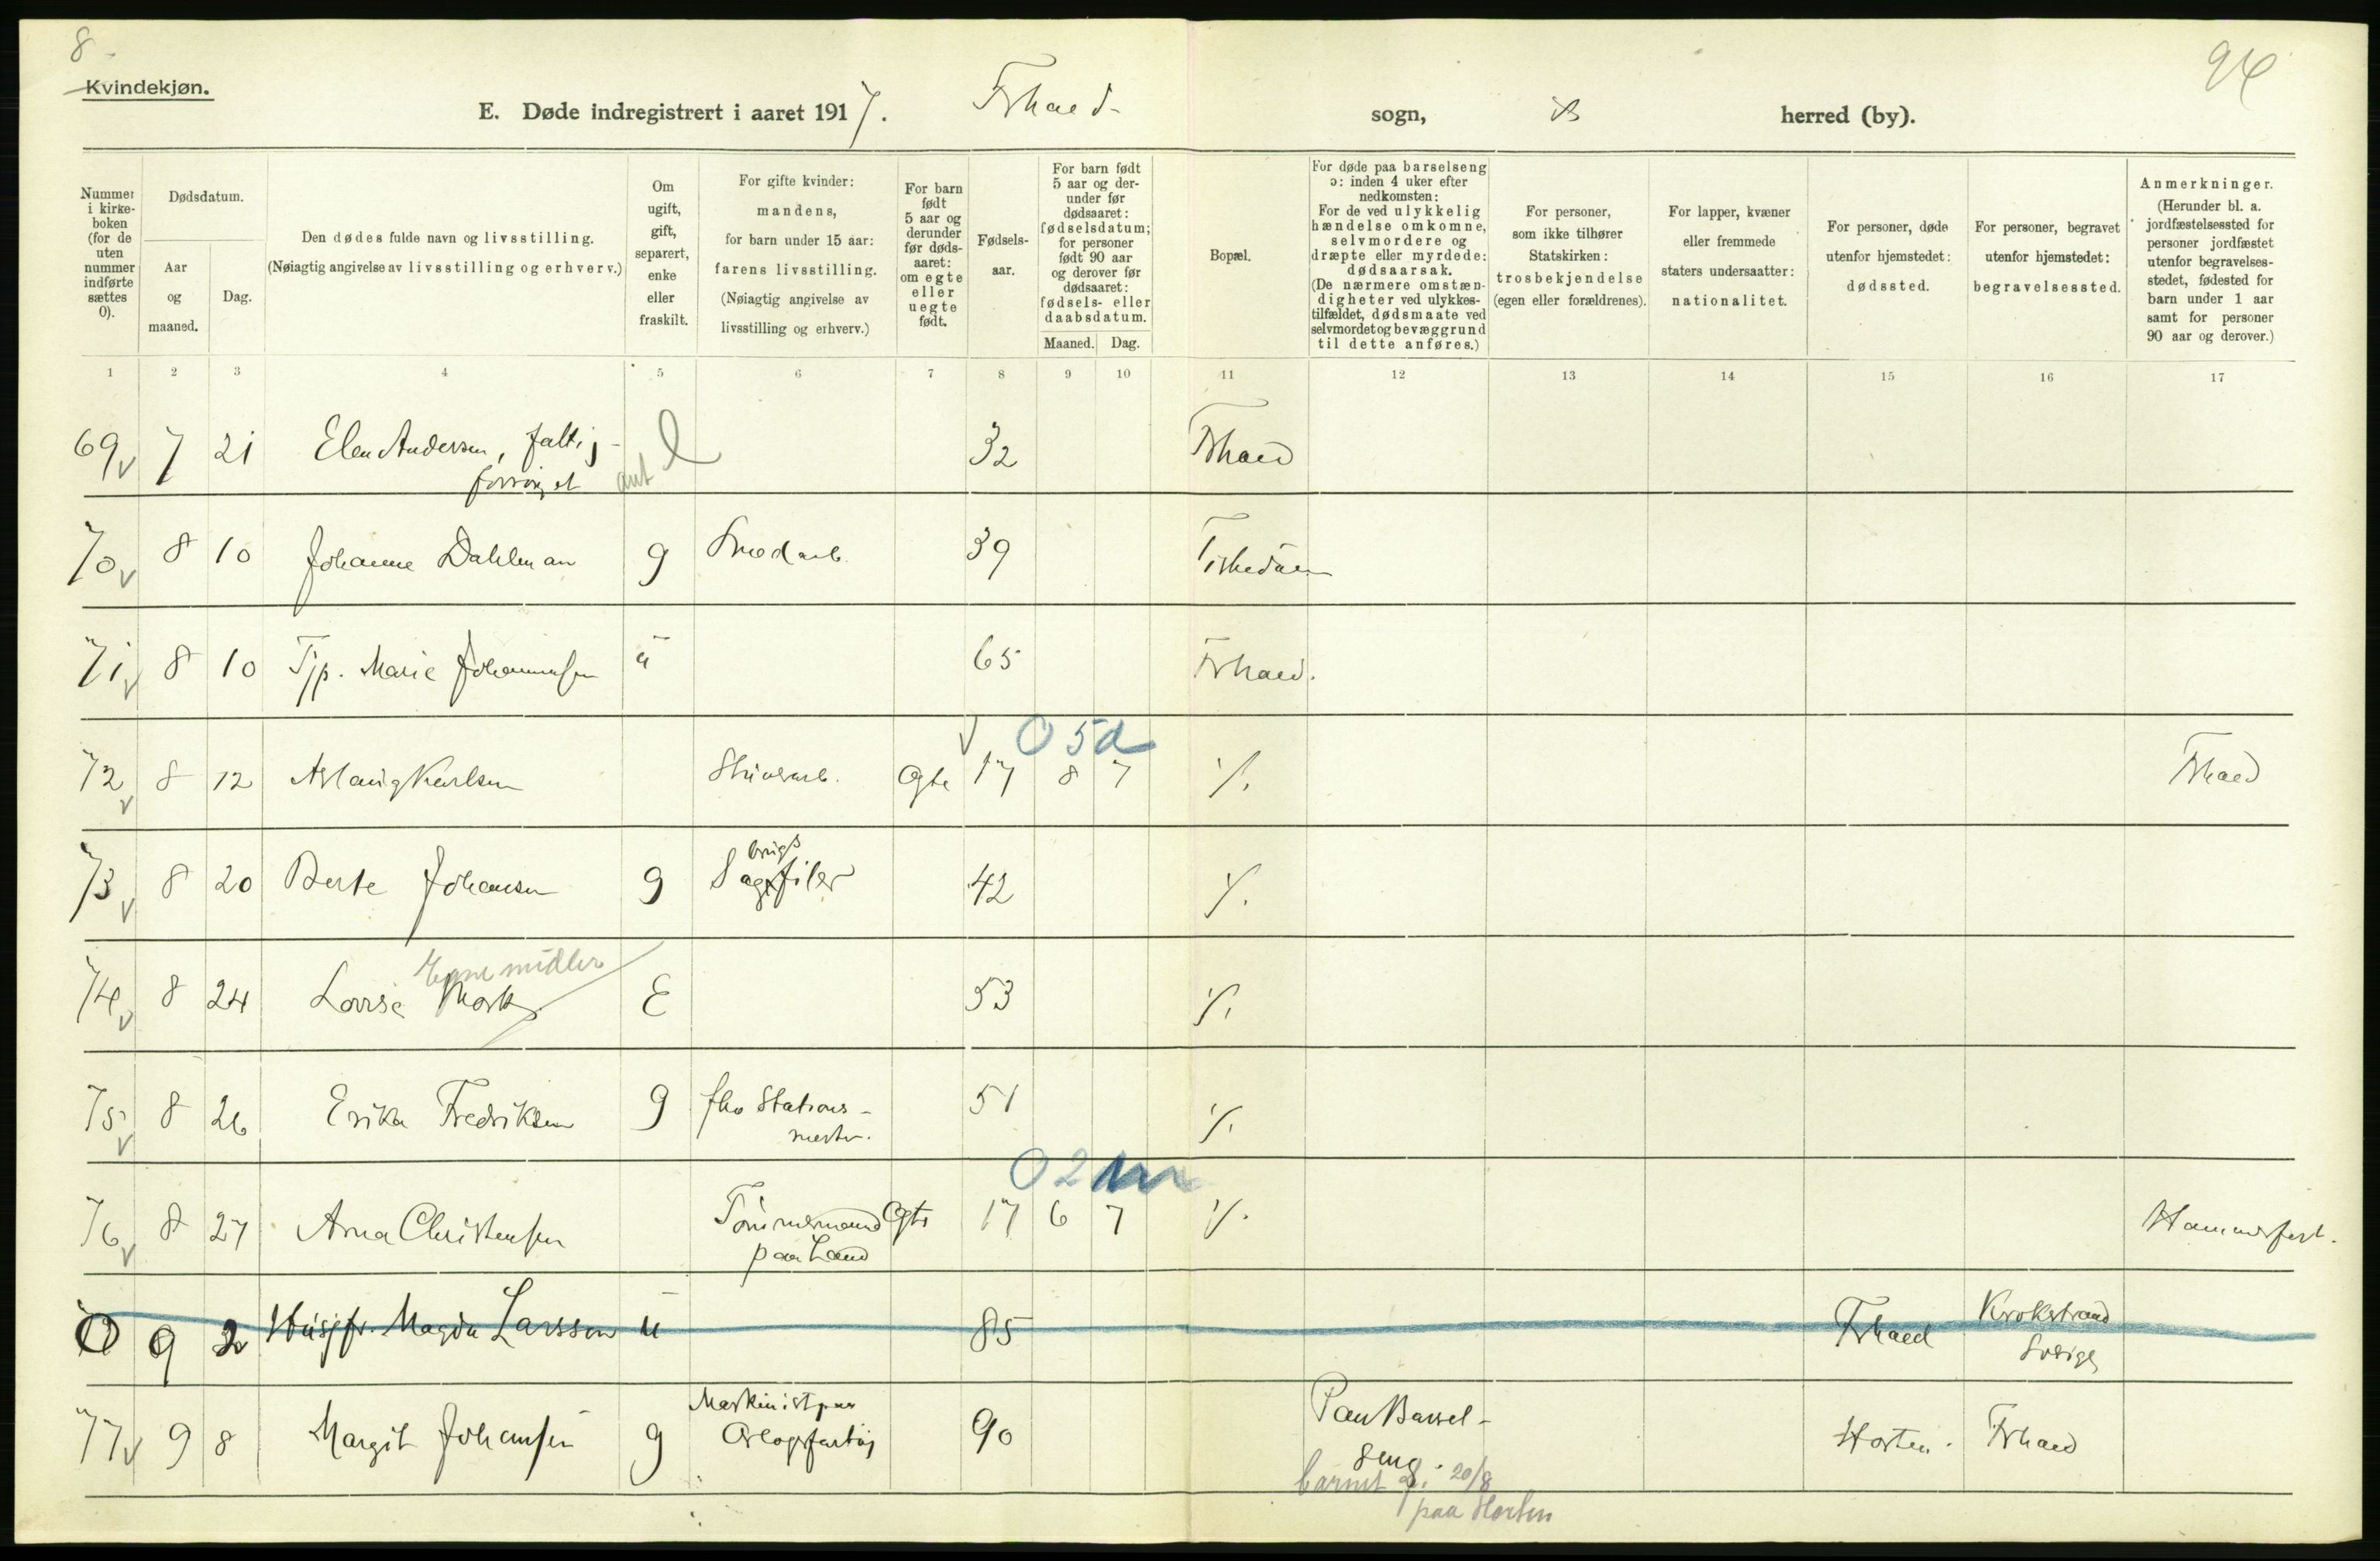 8
94
Kvindekjøn.
E. Døde indregistrert i aaret 1917. Frhald sogn, herred (by).
Nummer i kirke-boken (for de uten nummer indførte sættes 0).
Dødsdatum.
Aar og maaned.
Dag.
Den dødes fulde navn og livsstilling.
(Nøiagtig angivelse av livsstilling og erhverv.)
Om ugift, gift, separert, enke eller fraskilt.
For gifte kvinder: mandens, for barn under 15 aar: farens livsstilling. (Nøiagtig angivelse av livsstilling og erhverv.)
For barn født 5 aar og derunder før døds-aaret: om egte eller uegte født.
Fødsels-aar.
For barn født 5 aar og der-under før dødsaaret: fødselsdatum; for personer født 90 aar og derover før dødsaaret: fødsels- eller daabsdatum.
Maaned. Dag.
Bopæl.
For døde paa barselseng ɔ: inden 4 uker efter nedkomsten:
For de ved ulykkelig hændelse omkomne, selvmordere og dræpte eller myrdede: dødsaarsak.
(De nærmere omstæn-digheter ved ulykkes-tilfældet, dødsmaate ved selvmordet og bevæggrund til dette anføres.)
For personer, som ikke tilhører Statskirken: trosbekjendelse (egen eller forældrenes).
For lapper, kvæner eller fremmede staters undersaatter: nationalitet.
For personer, døde utenfor hjemstedet: dødssted.
For personer, begravet utenfor hjemstedet: begravelsessted.
Anmerkninger. (Herunder bl. a. jordfæstelsessted for personer jordfæstet utenfor begravelses-stedet, fødested for barn under 1 aar samt for personer 90 aar og derover.)
1 2 3 4 5 6 7 8 9 10 11 12 13 14 15 16 17
69 7 21 Elen Andersen, fattig- 32 Frhald
forsørget
70 8 10 Johanne Dahlman g 39 Tistedalen
71 8 10 Tjp. Marie Johannesen u 65 Frhald.
0 5d
72 8 12 Aslaug Karlsen Egte 17 8 7 ./. Frhald
brugs
73 8 20 Berte Johansen g Sagfiler 42 ./.
Egne midler
74 8 24 Lovise Mork E 53 ./.
75 8 26 Erika Fredriksen g fhv Stations- 51 ./.
mester.
0 2m
76 8 27 Arna Christensen Tømmermand Egte 17 6 7 ./. Hammerfest.
paa Land
0 9 2 Husjfr. Magda Larsson u 85 Frhald Krokstrand
Sverige
77 9 8 Margit Johansen g Maskinist paa 90 Paa Barsel- Horten. Frhald
Orlogsfartøj seng.
barnet f. 20/8
paa Horten